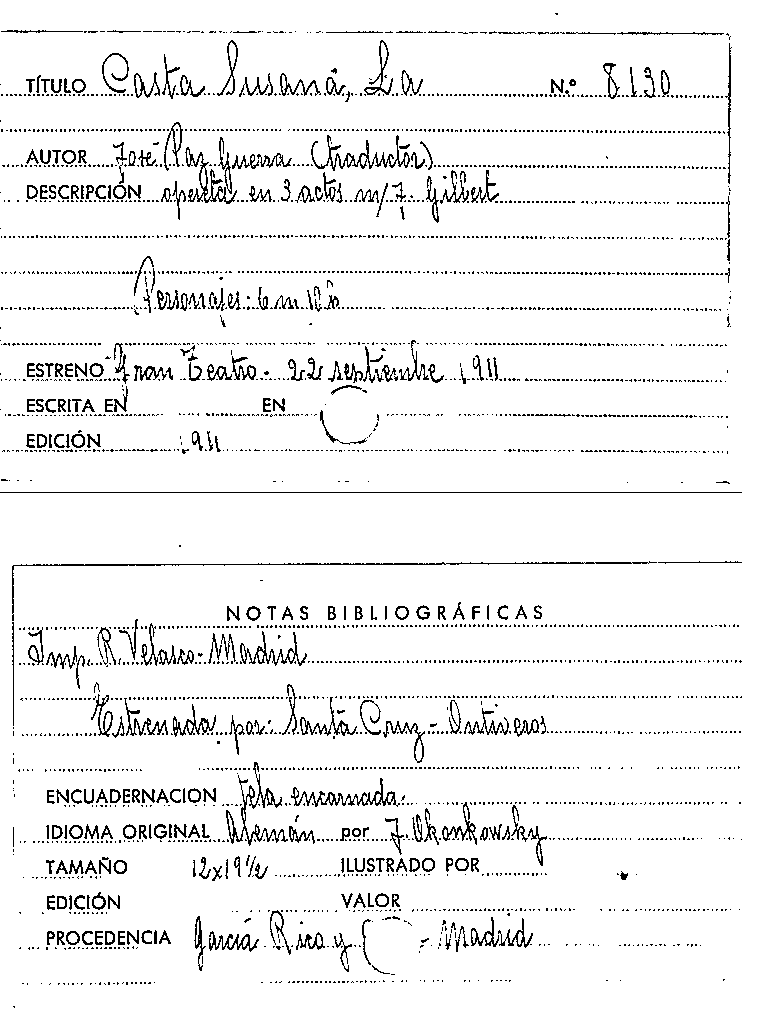 TÍTULO Casta Susana, La N.º 8130
AUTOR José Paz Guerra (traductor)
DESCRIPCIÓN opereta en 3 actos m/ J. Gilbert
Personajes: 6 m 12 h
ESTRENO Gran Teatro - 22 septiembre 1911
ESCRITA EN EN
EDICIÓN 1911
NOTAS BIBLIOGRÁFICAS
Imp. R. Velasco - Madrid
Estrenada por: Santa Cruz - Ontiveros
ENCUADERNACION tela encarnada.
IDIOMA ORIGINAL Alemán por J. Okonkowsky
TAMAÑO 12x19½ ILUSTRADO POR
EDICIÓN VALOR
PROCEDENCIA García Rico y - Madrid